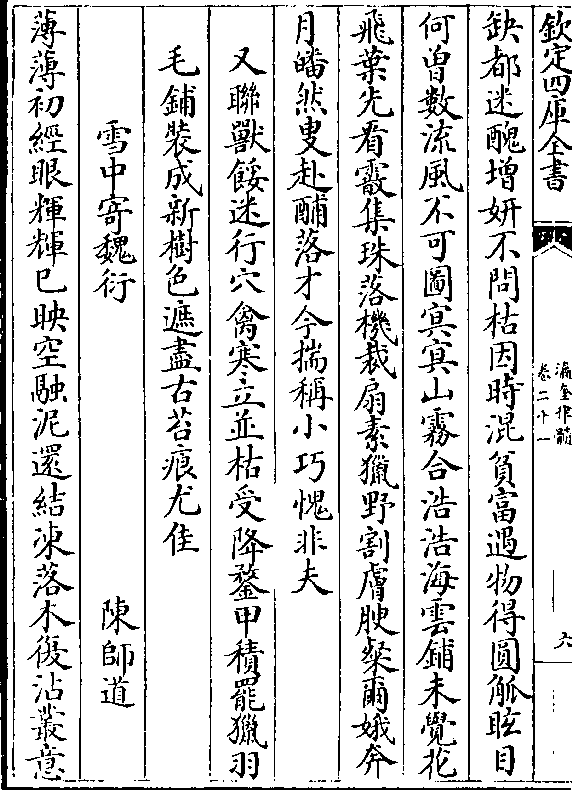 欽定四庫全書
瀛奎律髓
卷二十一
六
缺都迷醜增妍不問枯因時混貧富遇物得圓觚眩目
何曾數流風不可圖寞寞山霧合浩浩海雲鋪未覺花
飛葉先看霰集珠落機裁扇素獵野割膚腴粲爾娥奔
月皤然叟赴酺落才今揣稱小巧愧非夫
又聯獸餒迷行穴禽寒立並枯受降鍪甲積罷獵羽
毛鋪裝成新樹色遮盡古苔痕尤佳
雪中寄魏衍 陳師道
薄薄初經眼輝輝已映空融泥還結凍落木復沾叢意